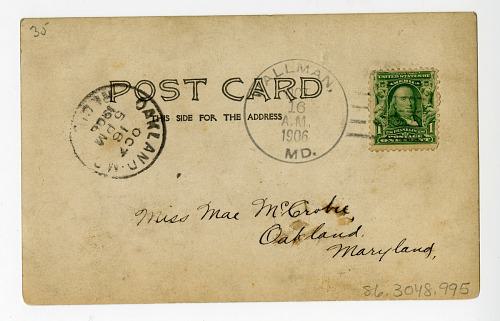 35
POST CARD
THIS SIDE FOR THE ADDRESS
OAKLAND M.D.
OCT
16
5 PM
1906
ALLMAN,
16
A.M.
1906
MD.
UNITED STATES OF
AMERICA
FRANKLIN
POSTAGE
ONE CENT
Miss Mae McCrobie,
Oakland,
Maryland,
86.3048.995